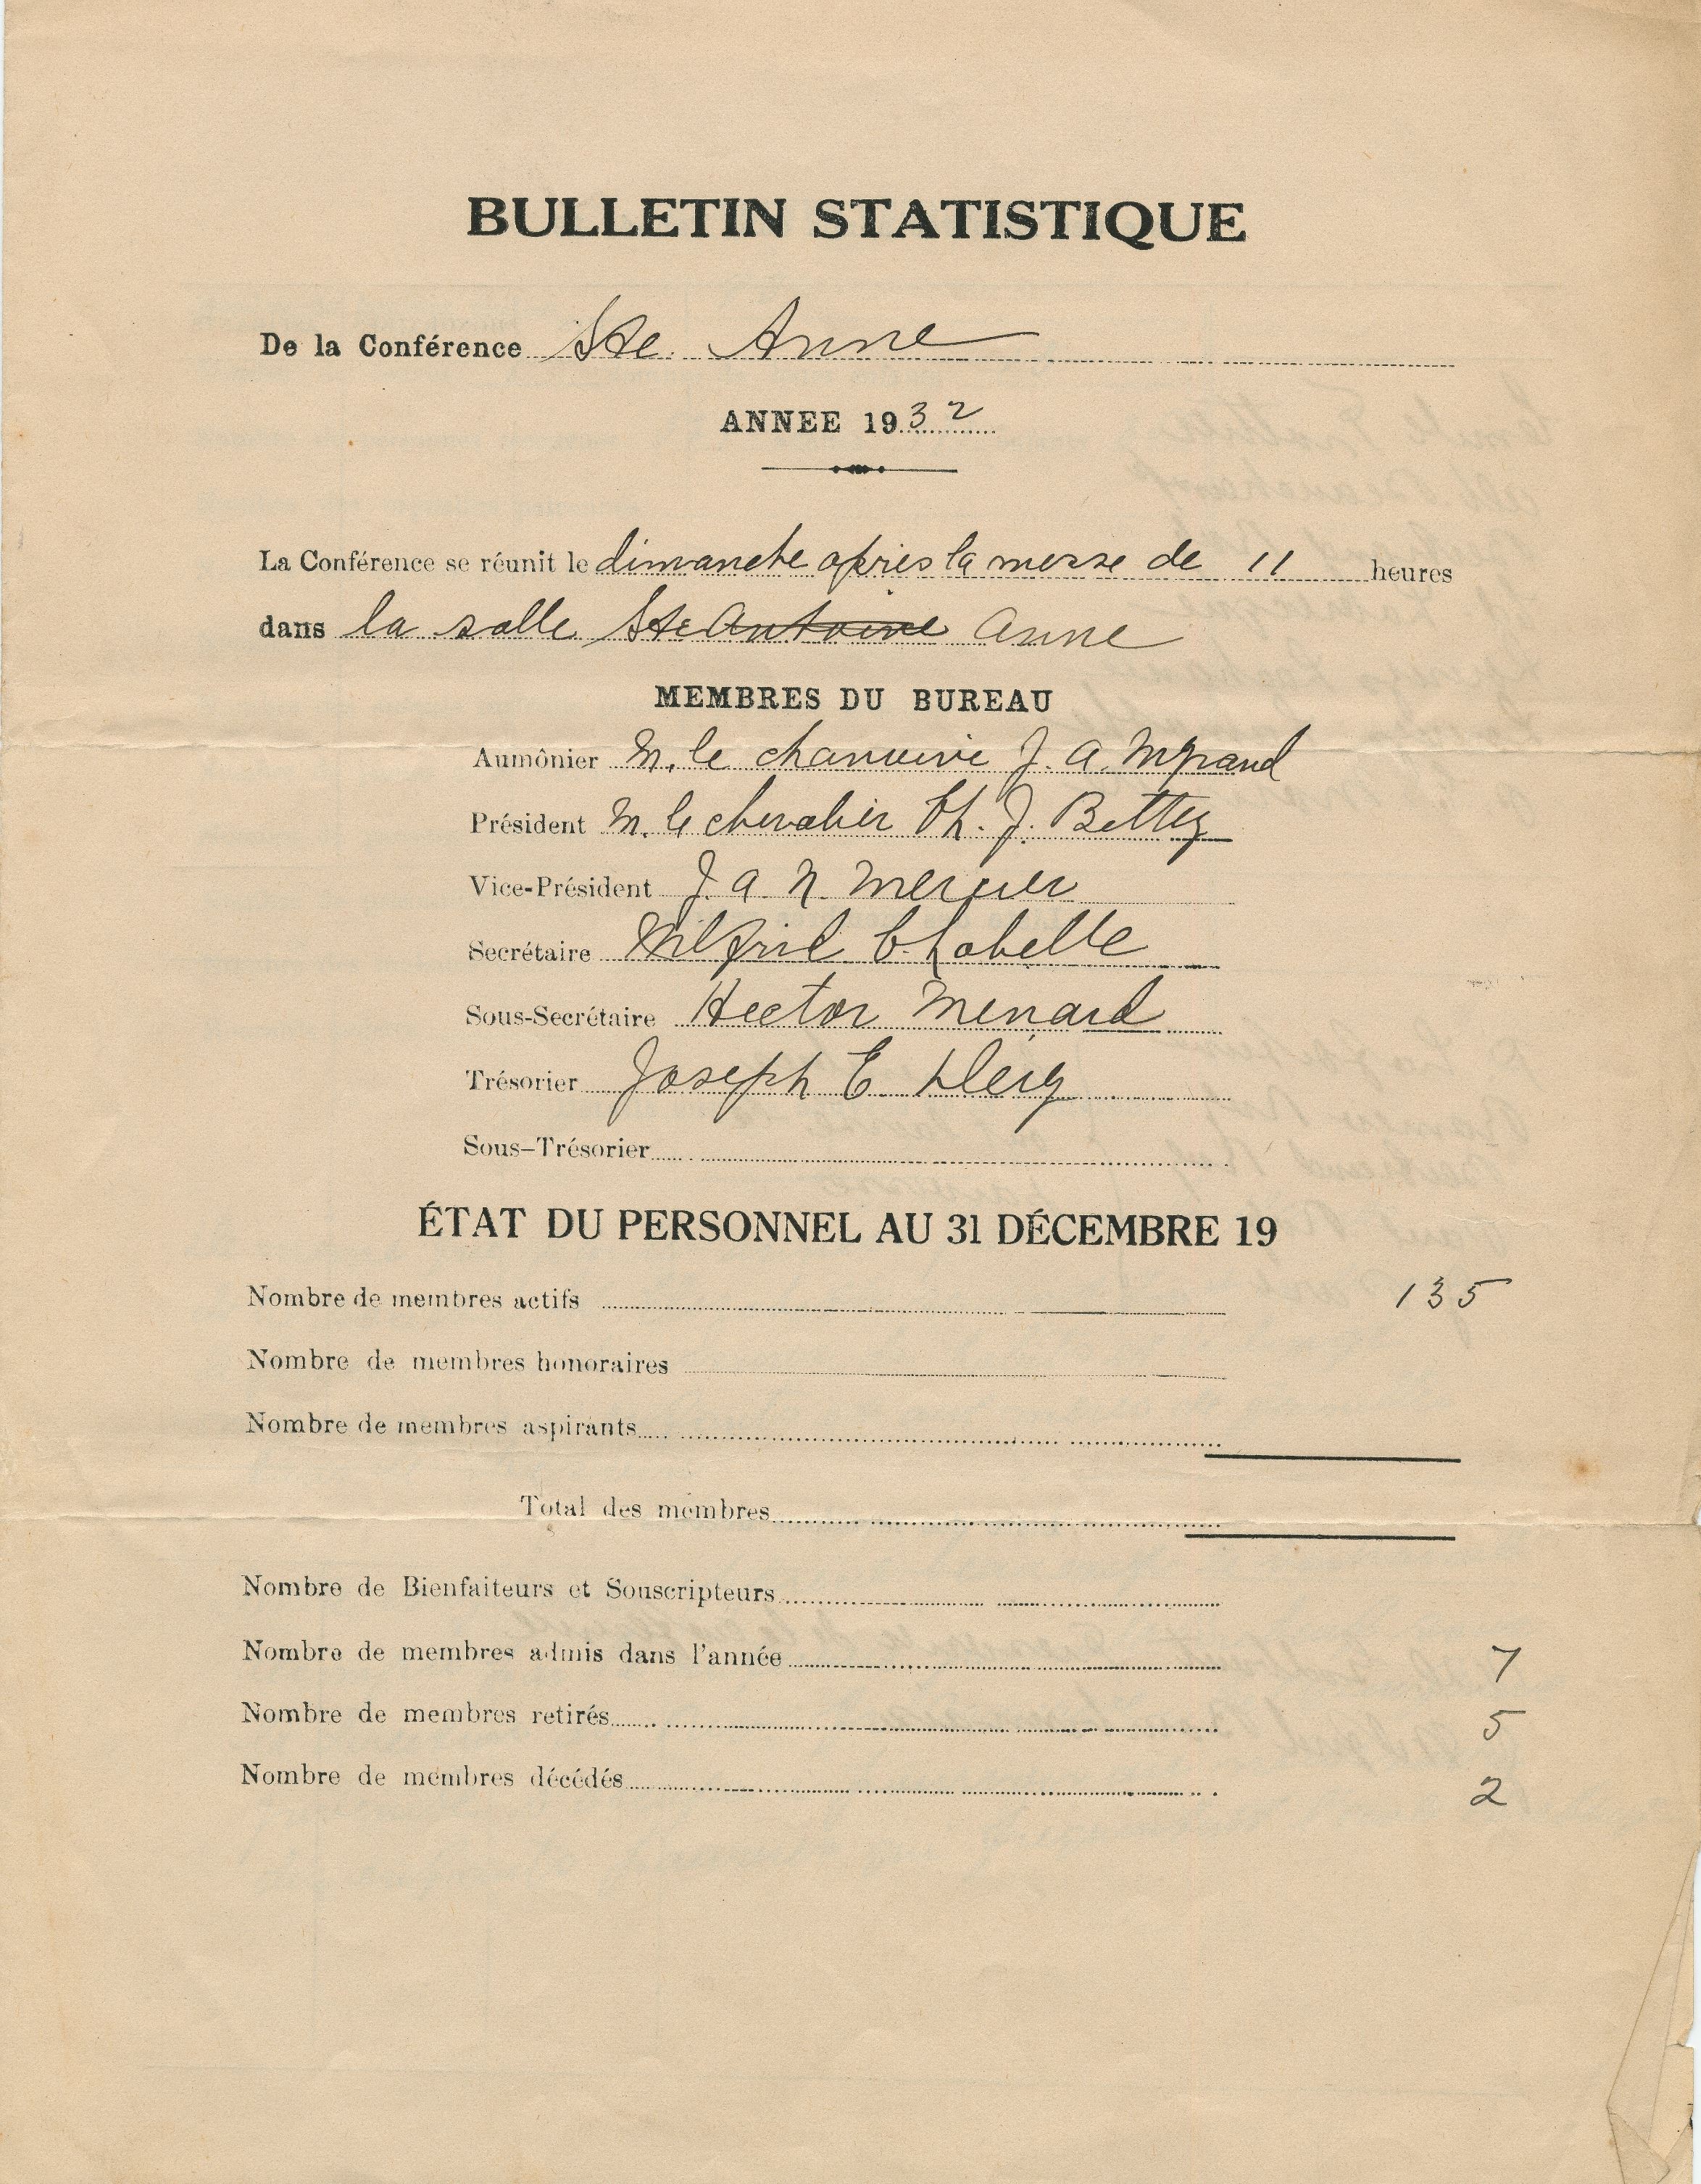 BULLETIN STATISTIQUE
De la Conférence Ste. Anne
ANNEE 1932
La Conférence se réunit le dimanche après la messe de 11 heures
dans la salle Ste Antoine Anne
MEMBRES DU BUREAU
Aumônier M. le chanoine J. A. Myrand
Président M. le chevalier Ch. J. Bettez
Vice-Président J. A. N. Mercier
Secrétaire Wilfrid C. Labelle
Sous-Secrétaire Hector Menard
Trésorier Joseph E.
Sous-Trésorier
ÉTAT DU PERSONNEL AU 31 DÉCEMBRE 19
Nombre de membres actifs 135
Nombre de membres honoraires
Nombre de membres aspirants
Total des membres
Nombre de Bienfaiteurs et Souscripteurs
Nombre de membres admis dans l'année 7
Nombre de membres retirés 5
Nombre de membres décédés 2